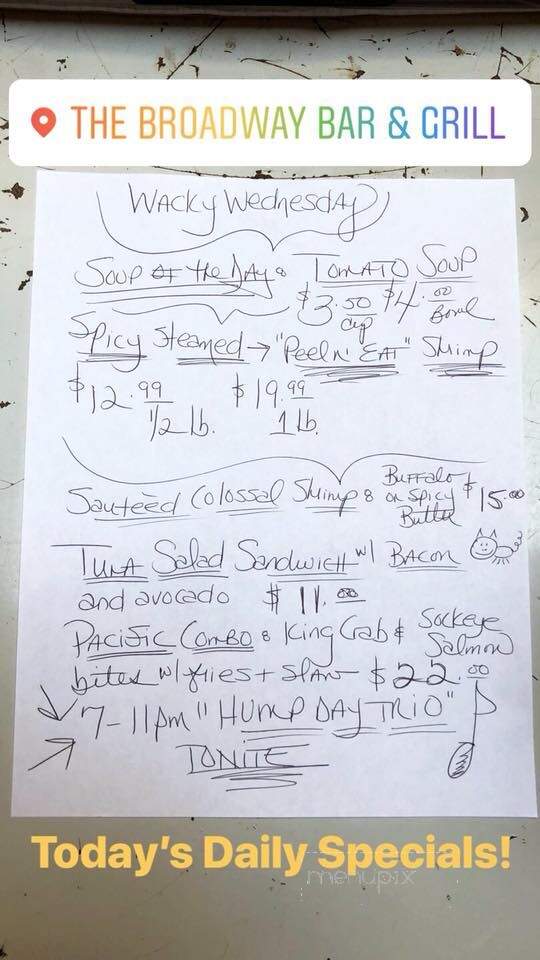 THE BROADWAY BAR & GRILL
Wacky Wednesday
Soup of the Day: Tomato Soup
$3.50 cup $4.00 Bowl
Spicy Steamed → "Peel n' Eat" Shrimp
$12.99 1/2 lb. $19.99 1 lb.
Sautéed Colossal Shrimp: Buffalo or Spicy Butter $15.00
Tuna Salad Sandwich w/ Bacon
and avocado $11.00
Pacific Combo: King Crab & Sockeye Salmon
bites w/ fries + slaw - $22.00
7-11pm "Hump Day Trio"
Tonite
Today's Daily Specials!
menupix